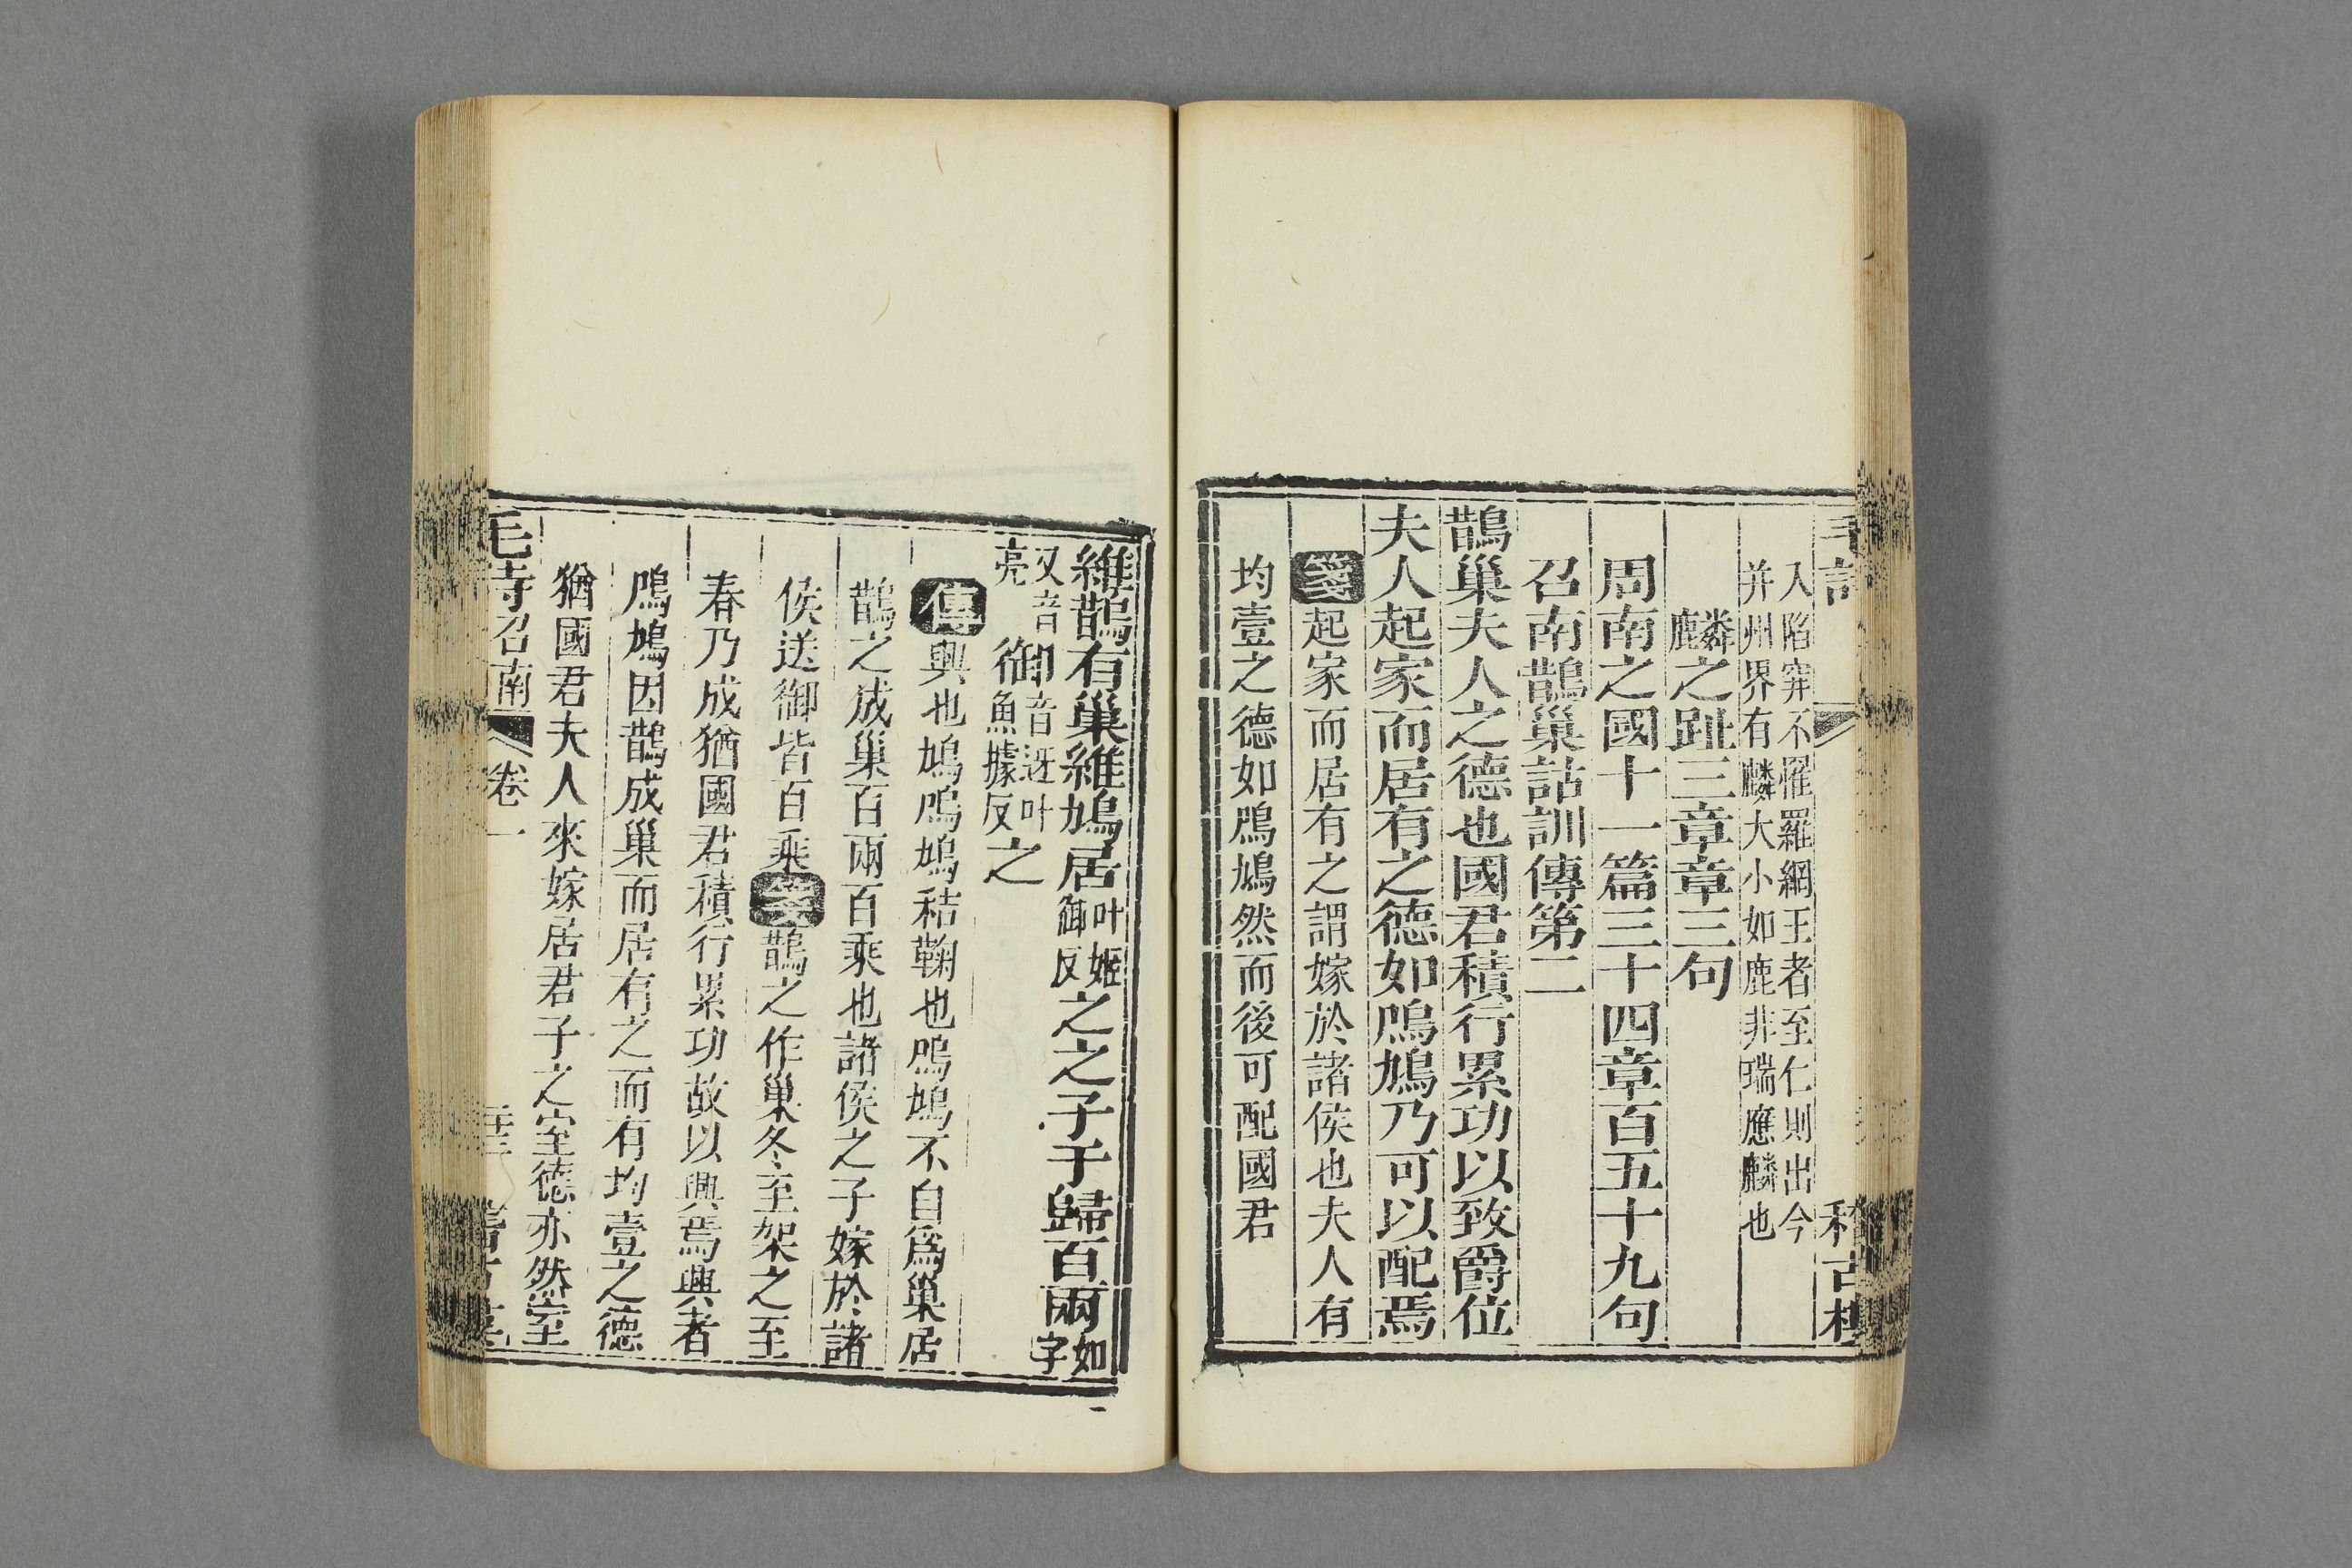 入陷穽不罹羅網王者至仁則出今
并州界有麟大小如鹿非瑞應麟也
麟之趾三章章三句
周南之國十一篇三十四章百五十九句
召南鵲巢詁訓傳第二
鵲巢夫人之德也國君積行累功以致爵位
夫人起家而居有之德如鳲鳩乃可以配焉
箋起家而居有之謂嫁於諸侯也夫人有
均壹之德如鳲鳩然而後可配國君
維鵲有巢維鳩居叶姬御反之之子于歸百兩如字
又音亮御音迓叶魚據反之
傳興也鳩鳲鳩秸鞠也鳲鳩不自爲巢居
鵲之成巢百兩百乘也諸侯之子嫁於諸
侯送御皆百乘箋鵲之作巢冬至架之至
春乃成猶國君積行累功故以興焉興者
鳲鳩因鵲成巢而居有之而有均壹之德
猶國君夫人來嫁居君子之室德亦然室
召南 卷一